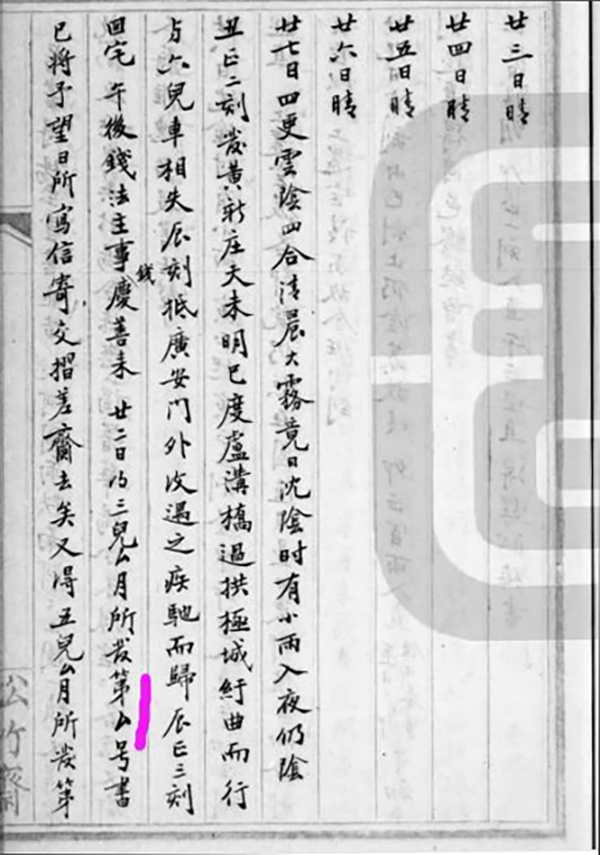 廿三日晴
廿四日晴
廿五日晴
廿六日晴
廿七日四更雲陰四合清晨大霧竟日沈陰时有小雨入夜仍陰
丑正二刻發黃新庄天未明已度盧溝橋過拱極城紆曲而行
与六兒車相失辰刻抵廣安門外遇之疾馳而歸辰正三刻
錢
回宅午後錢法主事慶善来 廿二日乃三兒厶月所發第厶号書
已将予望日所寫信寄交摺差齎去矣又得五兒厶月所發第
松竹齋